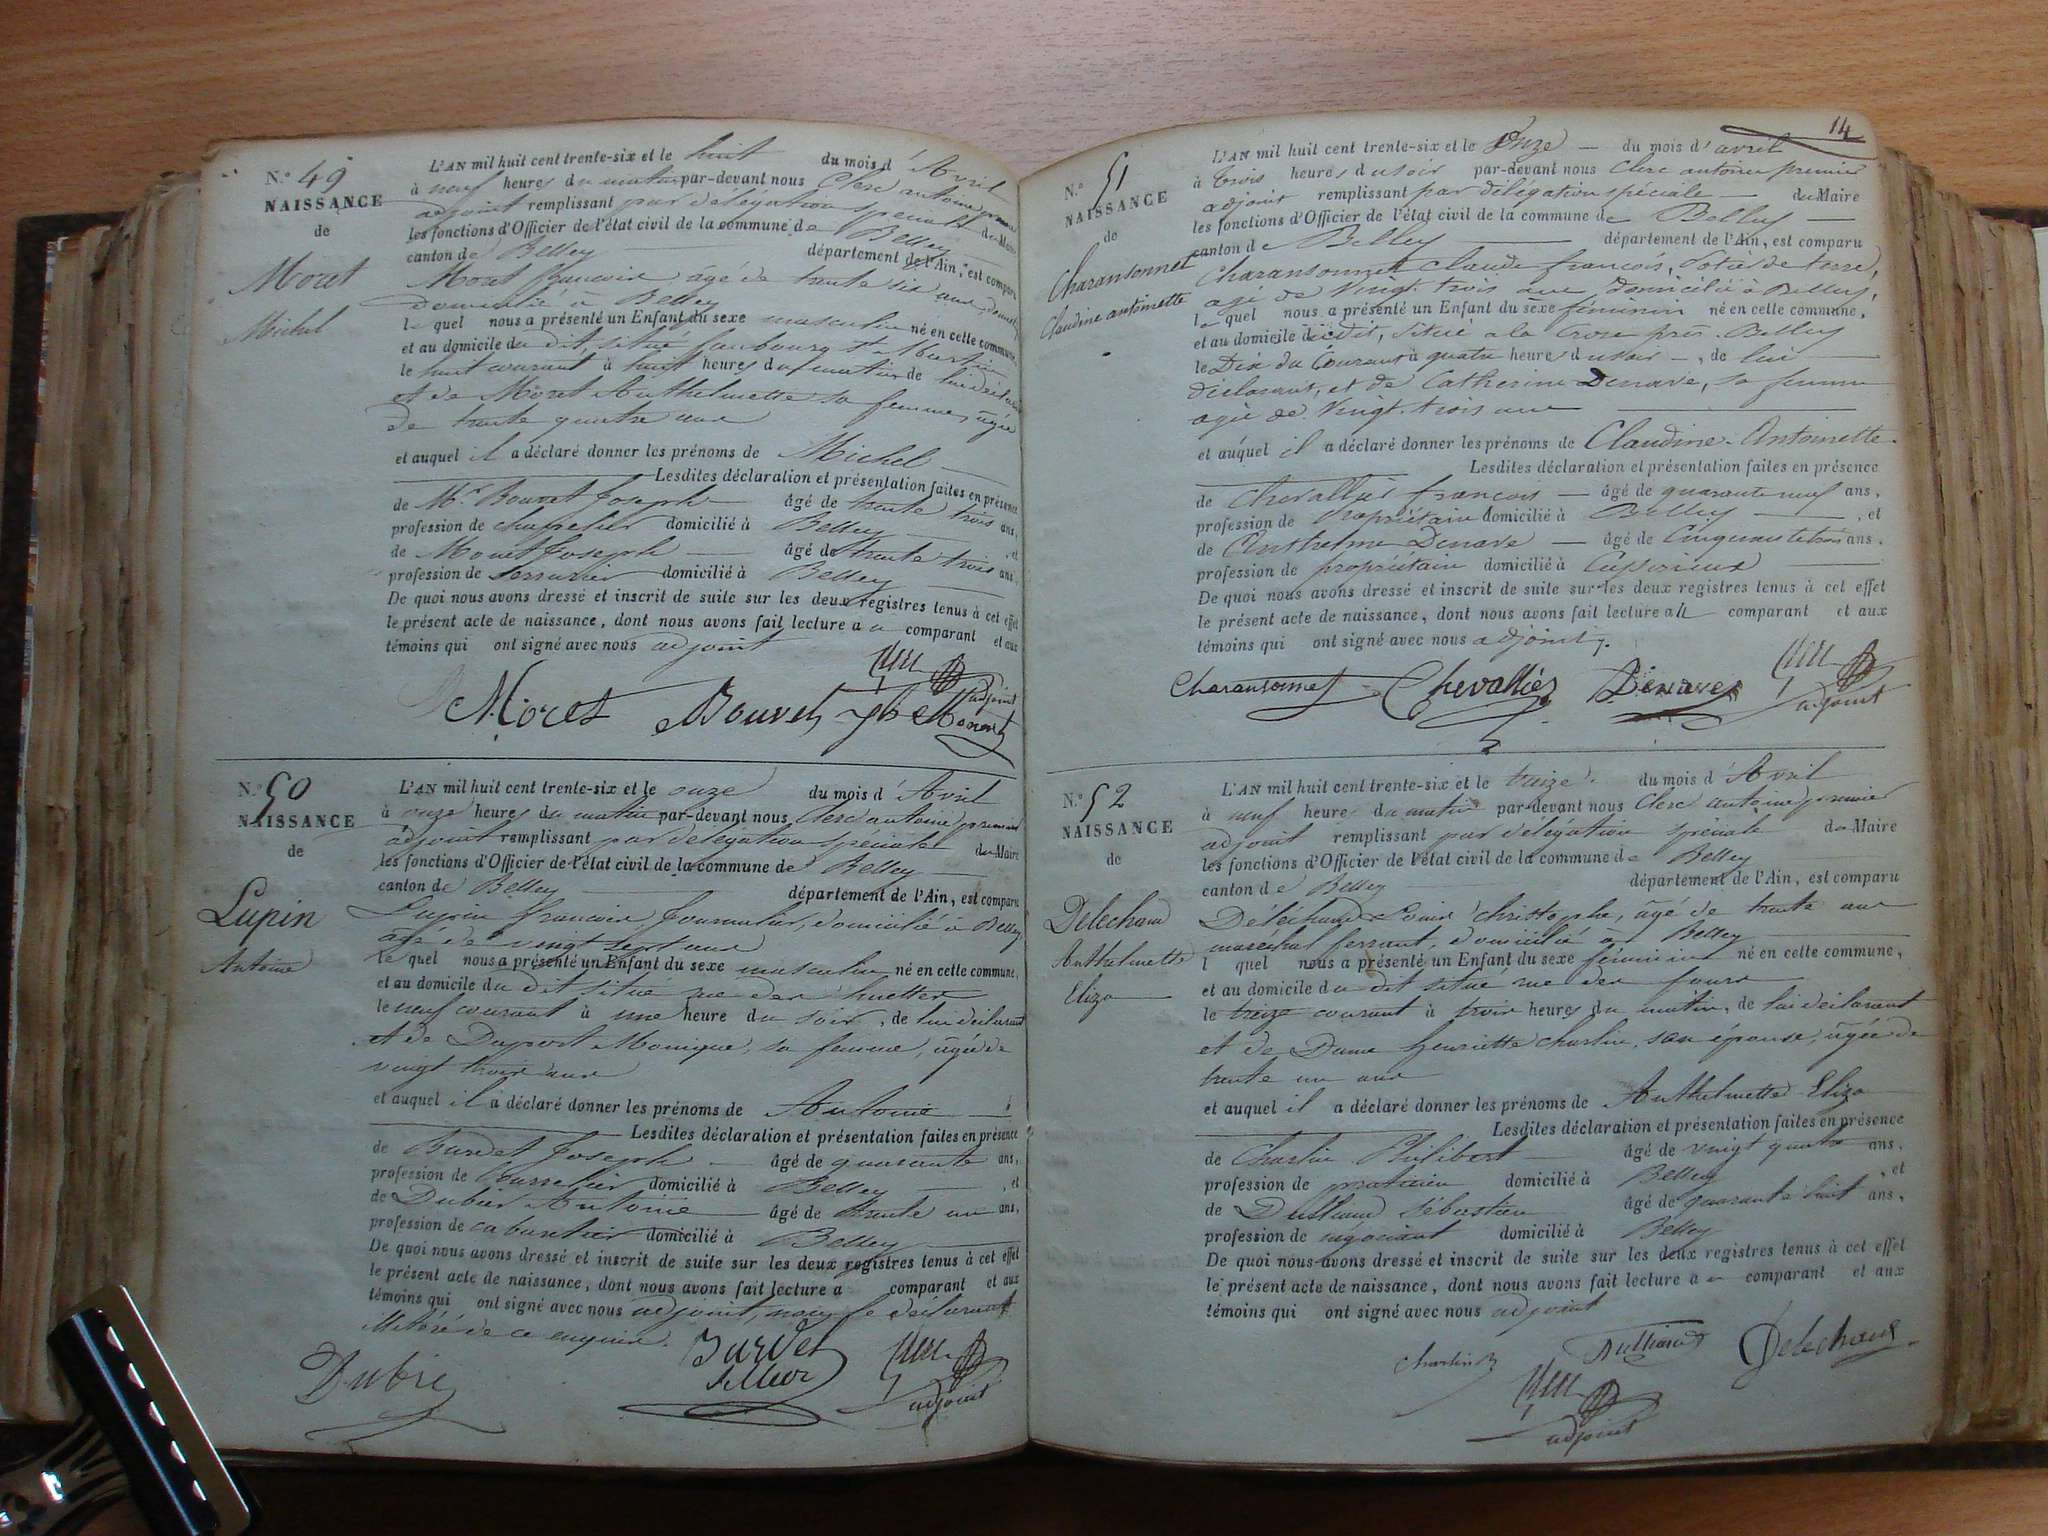 N.° 49
NAISSANCE
de
Moret
Michel
L'AN mil huit cent trente-six et le huit du mois d'Avril
à neuf heures du matin par-devant nous Clerc antoine premier
adjoint remplissant par délégation spéciale du Maire
les fonctions d'Officier de l'état civil de la commune de Belley
canton de Belley département de l'Ain, est comparu
Moret francois âgé de trente six ans,
domicilié à Belley
le quel nous a présenté un Enfant du sexe masculin né en cette commune,
et au domicile du dit, situé faubourg St Martin
le huit courant à huit heures du matin de lui déclarant
et de Moret Anthelmette sa femme, âgée
de trente quatre ans
et auquel il a déclaré donner les prénoms de Michel
Lesdites déclaration et présentation faites en présence
de Mr. Bouvet Joseph âgé de trente trois ans,
profession de chapelier domicilié à Belley , et
de Monet Joseph âgé de trente trois ans,
profession de serrurier domicilié à Belley
De quoi nous avons dressé et inscrit de suite sur les deux registres tenus à cet effet
le présent acte de naissance, dont nous avons fait lecture au comparant et aux
témoins qui ont signé avec nous adjoint
adjoint
Moret Bouvet
N.° 50
NAISSANCE
de
Lupin
Antoine
L'AN mil huit cent trente-six et le onze du mois d'Avril
à onze heures du matin par-devant nous Clerc antoine premier
adjoint remplissant par délégation spéciale du Maire
les fonctions d'Officier de l'état civil de la commune de Belley
canton de Belley département de l'Ain, est comparu
Lupin francois Journalier, domicilié à Belley
âgé de vingt sept ans
le quel nous a présenté un Enfant du sexe masculin né en cette commune,
et au domicile du dit situé rue des huettes
le neuf courant à une heure du soir, de lui déclarant
et de Duport Monique, sa femme, âgée de
vingt trois ans
et auquel il a déclaré donner les prénoms de Antoine
Lesdites déclaration et présentation faites en présence
de Burdet Joseph âgé de quarante ans,
profession de Bourrelier domicilié à Belley , et
de Dubier Antoine âgé de trente un ans,
profession de cabaretier domicilié à Belley
De quoi nous avons dressé et inscrit de suite sur les deux registres tenus à cet effet
le présent acte de naissance, dont nous avons fait lecture a comparant et aux
témoins qui ont signé avec nous adjoint, non le déclarant
illitéré de ce enquis.
Burdet
Sellier
Dubié
adjoint
14
N.° 51
NAISSANCE
de
Charansonnet
Claudine antoinette
L'AN mil huit cent trente-six et le Onze du mois d'avril
à trois heures du soir par-devant nous Clerc antoine premier
adjoint remplissant par délégation spéciale du Maire
les fonctions d'Officier de l'état civil de la commune de Belley
canton de Belley département de l'Ain, est comparu
Charansonnet Claude françois, Potié de terre,
agé de vingt-trois ans domicilié à Belley,
le quel nous a présenté un Enfant du sexe féminin né en cette commune,
et au domicile du dit, situé a la Croze près Belley
le Dix du Courant à quatre heures du soir, de lui
déclarant, et de Catherine Denave, sa femme
agée de vingt-trois ans
et auquel il a déclaré donner les prénoms de Claudine-Antoinette.
Lesdites déclaration et présentation faites en présence
de Chevallier françois âgé de quarante neuf ans,
profession de Propriétaire domicilié à Belley , et
de Anthelme Denave âgé de Cinquante trois ans,
profession de propriétaire domicilié à
De quoi nous avons dressé et inscrit de suite sur les deux registres tenus à cet effet
le présent acte de naissance, dont nous avons fait lecture au comparant et aux
témoins qui ont signé avec nous adjoint.
Charansonnet Chevallier Denave
adjoint
N.° 52
NAISSANCE
de
Delechaud
Anthelmette
Eliza
L'AN mil huit cent trente-six et le treize du mois d'Avril
à neuf heures du matin par-devant nous Clerc antoine premier
adjoint remplissant par délégation spéciale du Maire
les fonctions d'Officier de l'état civil de la commune de Belley
canton de Belley département de l'Ain, est comparu
Deléchaud Louis Christophe, âgé de trente ans
maréchal ferrant, domicilié à Belley
l quel nous a présenté un Enfant du sexe féminin né en cette commune,
et au domicile du dit situé rue des fours
le treize courant à trois heures du matin, de lui déclarant
et de Dame henriette Charlin, son épouse, âgée de
trente un ans
et auquel il a déclaré donner les prénoms de Anthelmette Eliza
Lesdites déclaration et présentation faites en présence
de Charlin Philibert âgé de vingt quatre ans,
profession de praticien domicilié à Belley , et
de Dulliand Sébastien âgé de quarante huit ans,
profession de négociant domicilié à Belley
De quoi nous avons dressé et inscrit de suite sur les deux registres tenus à cet effet
le présent acte de naissance, dont nous avons fait lecture au comparant et aux
témoins qui ont signé avec nous adjoint
Charlin Dulliand Delechaud
adjoint